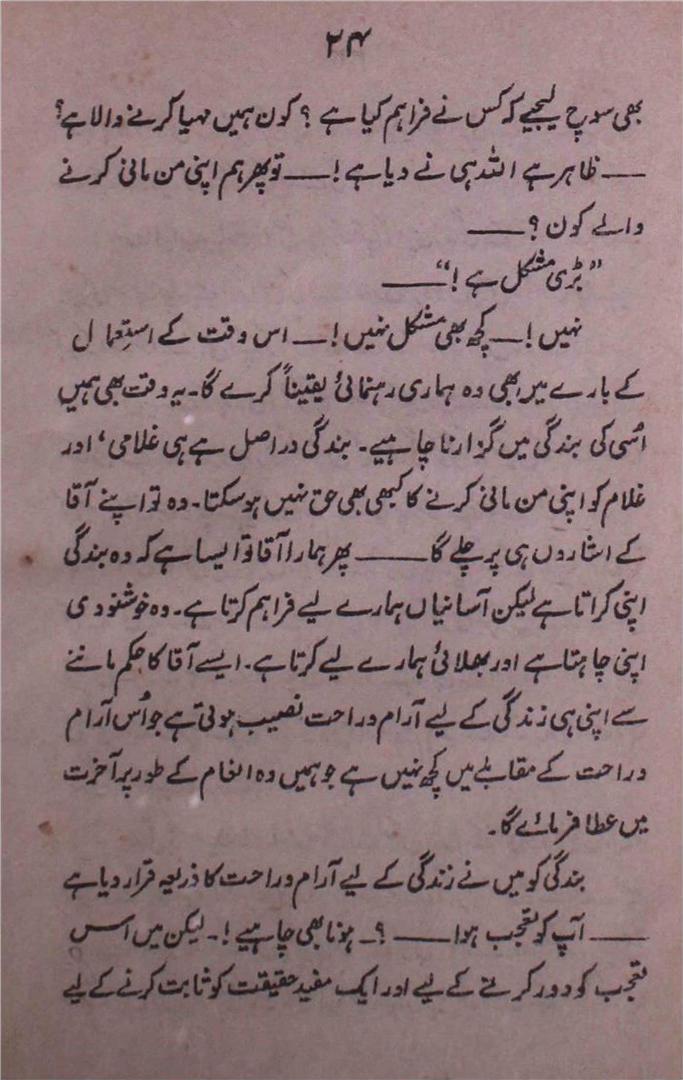 ۲۴
بھی سوچ لیجیے کہ کس نے فراہم کیا ہے ؟ کون ہمیں مہیا کرنے والا ہے؟
—— ظاہر ہے اللہ ہی نے دیا ہے! —— تو پھر ہم اپنی من مانی کرنے
والے کون ؟ ——
”بڑی مشکل ہے!“ ——
نہیں! — کچھ بھی مشکل نہیں! — اس وقت کے استعمال
کے بارے میں بھی وہ ہماری رہنمائی یقیناً کرے گا۔ یہ وقت بھی ہمیں
اُسی کی بندگی میں گزارنا چاہیے۔ بندگی دراصل ہے ہی غلامی، اور
غلام کو اپنی من مانی کرنے کا کبھی بھی حق نہیں ہو سکتا۔ وہ تو اپنے آقا
کے اشاروں ہی پر چلے گا —— پھر ہمارا آقا تو ایسا ہے کہ وہ بندگی
اپنی کراتا ہے لیکن آسانیاں ہمارے لیے فراہم کرتا ہے۔ وہ خوشنودی
اپنی چاہتا ہے اور بھلائی ہمارے لیے کرتا ہے۔ ایسے آقا کا حکم ماننے
سے اپنی ہی زندگی کے لیے آرام و راحت نصیب ہوتی ہے جو اُس آرام
و راحت کے مقابلے میں کچھ نہیں ہے جو ہمیں وہ انعام کے طور پر آخرت
میں عطا فرمائے گا۔
بندگی کو میں نے زندگی کے لیے آرام و راحت کا ذریعہ قرار دیا ہے
—— آپ کو تعجب ہوا —— ؟ ۔ ہونا بھی چاہیے!۔ لیکن میں اس
تعجب کو دور کرنے کے لیے اور ایک مفید حقیقت کو ثابت کرنے کے لیے